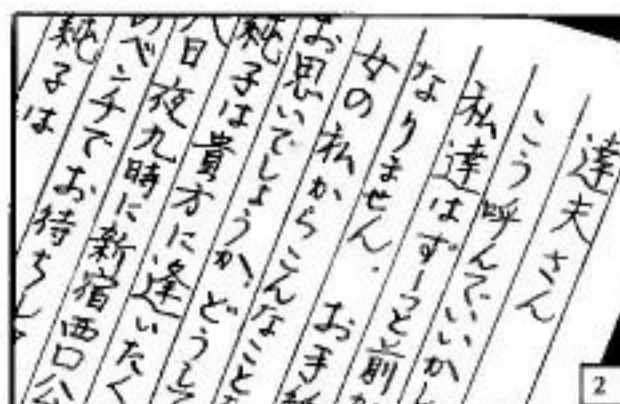 達夫さん
こう呼んでいいかし
私達はずーっと前か
なりません. お手紙
女の私からこんなこと
お思いでしょうか。どうして
純子は貴方に逢いたく
八日夜九時に新宿西口公
のベンチでお待ちし
純子は
2